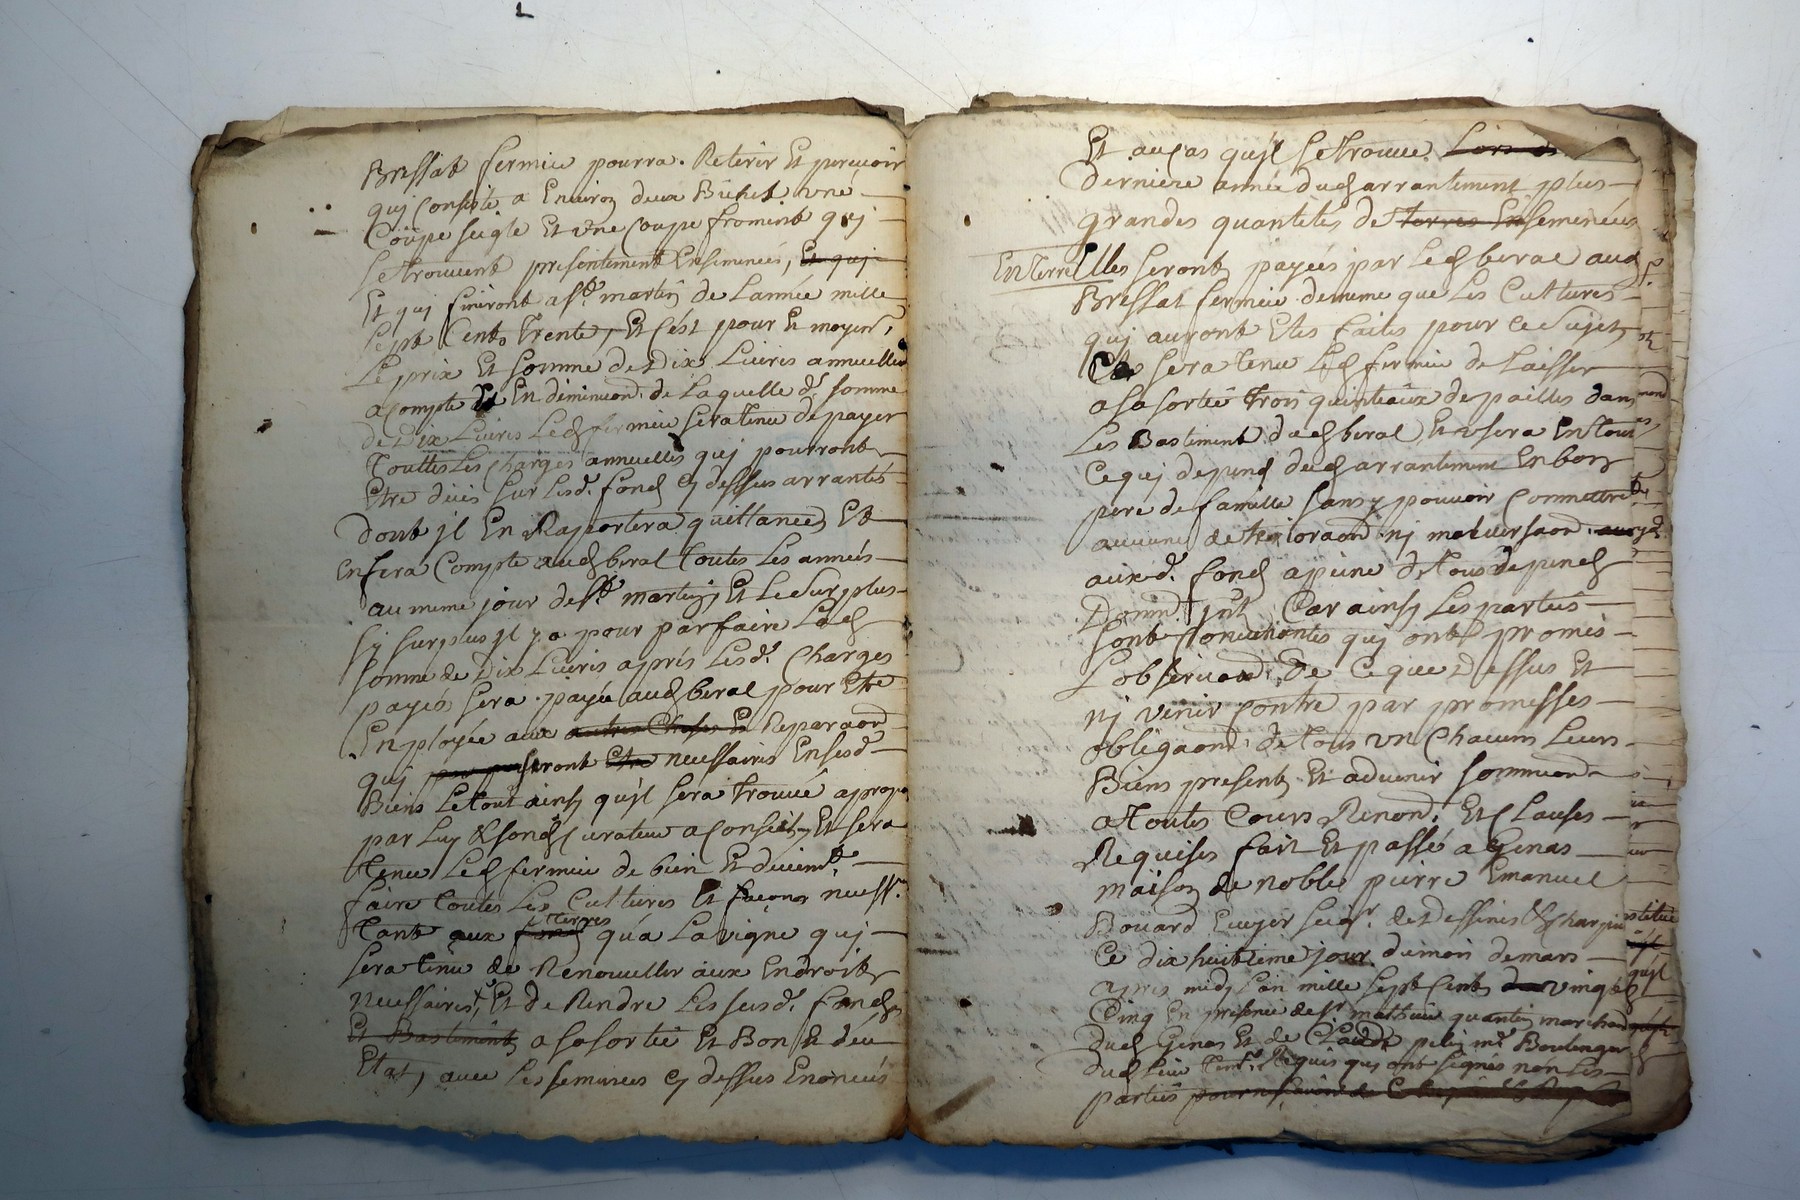 Bressat fermier pourra Retirer Et percevoir
quj Consiste a Environ deux Bichet une
Coupe seigle Et une Coupe froment quj
se trouvent presentement Ensemencés, Et quj
Et quj finiront a St martin de Lannée mille
sept Cents Trente, Et C'est pour Et moyen.
Le prix Et somme de Dix Livres annuelle
a Compte Et En diminuon. de Laquelle d. somme
de Dix Livres Led fermier sera tenu de payer
Touttes Les Charges annuelles quj pourront
Etre dües sur Lesd. fond cy dessus arrantés
dont jl En Raportera quittances Et
En fera Compte aud beral Toutes Les années
au meme jour de St martin, Et Le Surplus
sy surplus jl y a pour parfaire Lad
somme de Dix Livres aprés Lesd. Charges
payés sera payée aud beral pour Etre
Employée aux autres Choses Et Reparaon
quj seront Etre necessaires Ensesd
Biens Le tout ainsy qu'jl sera trouvé a propo
par Luy & sond Curateur a Conseil, Et sera
Tenu Led fermier de bien Et deüemt
faire toutes Les Cultures Et façons necess.
Tant aux fonds Terres qu'a La vigne quj
sera tenu de Renouveller aux Endroits
necessaires, Et de Rendre Les susd. fonds
Et Bastiments a sa sortie Et Bon Et deü
Etat, avec Les semences cy dessus Enoncées
Et au Cas qu'jl se trouve Lors de
derniere année dud arrantement plus
grandes quantetés de terres Ensemencées
En Terre Elles seront payées par Led beral aud
Bressat fermier de meme que Les Cultures
quj auront Etés faites pour Ce Sujet
sera tenu Led fermier de Laisser
a sa sortie Trois quinteaux de pailles dans
Les Bastiment dud beral, Et usera En tout
Ce quj depend dud arrantement En bon
pere de famille sans y pouvoir Commettre
aucune deterioraon nj malversaon
aux d. fond a peine de tous depends
Domm. jnt Car ainsy Les parties
sont Conventionés quj ont promis
L'observaon de Ce que Dessus Et
nj venir Contre par promesses
obligaons de tous un Chacuns Leurs
Biens presents Et advenir
a toutes Cours Renon. Et Clauses
Requises fait Et passé a Genas
maison de noble pierre Emanuel
Bouard Ecuyer seigr. de Dessines & Charpieu
Ce dix huitieme jour du mois de mars
apres midy L'an mille sept Cents vingt
Cinq En presence de sr mathieu quantin marchand
dud Genas Et de Claude pelin mr Boulenger
dud Lieu Tem. Requis quj ont signés non Les
parties